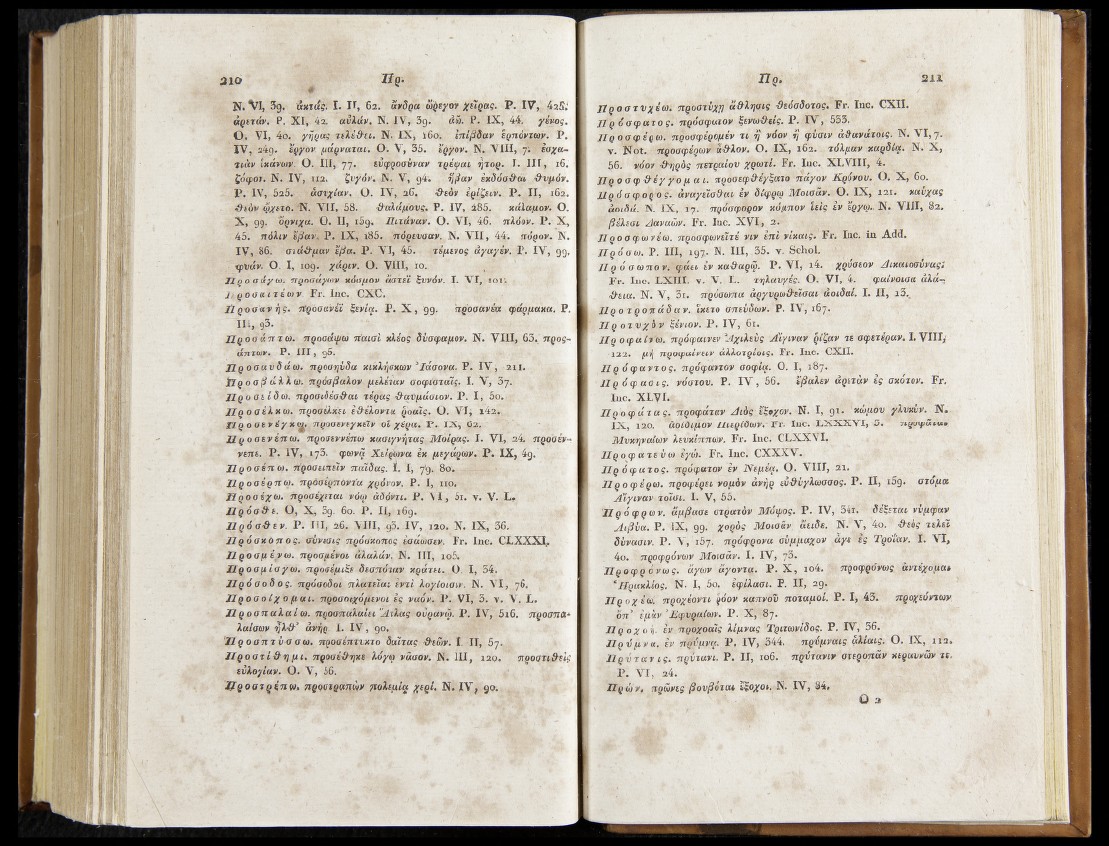 210 Πρ.
N. VI, 39. ἀκτάς. I. II, 62. ἄνδρα ὤρεγον χεῖρας. P. IV, 428.
ἀρετάν. P. XI, 42. αὐλάν. N. IV, 39. δῶ. P. IX, 44. γένος.
O. VI, 40. γῆρας τελέθει. N. IX, 160. ἐπίβδαν ἑρπόντων. P.
IV, 249. ἔργον μάρναται. O. V, 35. ἔργον. N. VIII, 7. ἐσχα-
τιὰν ἱκάνων. O. III, 77. εὐφροσύναν τρέψαι ἦτορ. I. III, 16.
ζόφον. N. IV, 112. ζυγόν. N. V, 94. ἥβαν ἐκδόσθαι θυμόν.
P. IV, 525. ἀστρίαν. O. IV, 26. θεὸν ἐρίζειν. P. II, 162.
θεὸν ᾤχετο. N. VII, 58. θαλάμους. P. IV, 285. κάλαμον. O.
X, 99. ὄρνιχα. O. II, 159. Πιτάναν. O. VI, 46. πλόον. P. X,
45. πόλιν ἔβαν. P. IX, 185. πόρευσαν. N. VII, 44. πόρον. N.
IV, 86. σιάθμαν ἔβα. P. VI, 45. τέμενος ἀγαγέν. P. IV, 99.
φυάν. O. I, 109. χάριν. O. VIII, 10.
Προσάγω. προσάγων κόσμον ἄστεϊ ξυνόν. I. VI, 101.
Προσαιτέων Fr. Inc. CXC.
Προσανής. προσανέϊ ξενίᾳ. P. X, 99. προσανέα φάρμακα. P.
III, 93.
Προσάπτω. προσάψω παισὶ κλέος δύσφαμον. N. VIII, 63. προς-
άπτων. P. III, 96.
Προσαυδάω. προσηύδα κικλήσκων Ἰάσονα. P. IV, 211.
Προσβάλλω. πρόσβαλον μελέταν σοφισταῖς. I. V, 37.
Προσείδω. προσιδέσθαι τέρας θαυμάσιον. P. I, 50.
Προσέλκω. προσέλκει ἐθέλοντα ῥοαῖς. O. VI, 142.
Προσενέγκω. προσενεγκεῖν οἱ χέρα. P. IX, 62.
Προσενέπω. προσεννέπω κασιγνήτας Μοίρας. I. VI, 24. προσέν-
νεπε. P. IV, 173. φωνᾷ Χείρωνα ἐκ μεγάρων. P. IX, 49.
Προσέπω. προσειπεῖν παῖδας. I. I, 79. 80.
Προσέρπω. πρόσερποντα χρόνον. P. I, 110.
Προσέχω. προσέχεται νόῳ ἀδόντι. P. VI, 51. v. V. L.
Πρόσθε. O, X, 39. 60. P. II, 169.
Πρόσθεν. P. III, 26. VIII, 93. IV, 120. N. IX, 36.
Πρόσκοπος. σύνεσις πρόσκοπος ἐσάωσεν. Fr. Inc. CLXXXI.
Προσμένω. προσμένοι ἀλαλάν. N. III, 105.
Προσμίσγω. προσέμιξε δεσπόταν κράτει. O. I, 34.
Πρόσοδος. πρόσοδοι πλατεῖαι ἐντὶ λογίοισιν. N. VI, 76.
Προσοίχομαι. προσοιχόμενοι ἐς ναόν. P. VI, 3. v. V. L.
Προσπαλαίω. προσπαλαίει Ἄτλας οὐρανῷ. P. IV, 516. προσπα-
λαίσων ἦλθ' ἀνὴρ. I. IV, 90.
Προσπτύσσω. προσέπτυκτο δαῖτας θεῶν. I. II, 57.
Προστίθημι. προσέθηκε λόγῳ νᾶσον. N. III, 120. προςτιθεὶς
εὐλογίαν. O. V, 56.
Προστρέπω. προστραπὼν πολεμίᾳ χερί. N. IV, 90.
Πρ. 211
Προστυχέω. προστύχῃ ἄθλησις θεόσδοτος. Fr. Inc. CXII.
Πρόσφατος. πρόσφατον ξενωθείς. P. IV, 533.
Προσφέρω. προσφέρομέν τι ἢ νόον ἢ φύσιν ἀθανάτοις. N. VI, 7.
v. Not. προσφέρων ἄθλον. O. IX, 162. τόλμαν καρδίᾳ. N. X,
56. νόον θηρὸς πετραίου χρωτί. Fr. Inc. XLVIII, 4.
Προσφθέγγομαι. προσεφθέγξατο πάγον Κρόνου. O. X, 60.
Πρόσφορος. ἀναγεῖσθαι ἐν δίφρῳ Μοισᾶν. O. IX, 121. καύχας
ἀοιδά. N. IX, 17. πρόσφορον κόμπον ἱεὶς ἐν ἔργῳ. N. VIII, 82.
βέλεσι Δαναῶν. Fr. Inc. XVI, 2.
Προσφωνέω. προσφωνεῖτέ νιν ἐπὶ νίκαις. Fr. Inc. in Add.
Πρόσω. P. III, 197. N. III, 35. v. Schol.
Πρόσωπον. φάει ἐν καθαρῷ. P. VI, 14. χρύσεον Δικαιοσύνας.
Fr. Inc. LXIII. v. V. L. τηλαυγές. O. VI, 4. φαίνοισα ἀλά-
θεια. N. V, 31. πρόσωπα ἀργυρωθεῖσαι ἀοιδαί. I. II, 13.
Προτροπάδαν. ἵκετο σπεύδων. P. IV, 167.
Προτυχὸν ξένιον. P. IV, 61.
Προφαίνω. πρόφαινεν Ἀχιλεὺς Αἴγιναν ῥίζαν τε σφετέραν. I. VIII,
122. μὴ προφαίνειν ἀλλοτρίοις. Fr. Inc. CXII.
Πρόφαντος. πρόφαντον σοφίᾳ. O. I, 187.
Πρόφασις. νόστου. P. IV, 56. ἔβαλεν ἀρετὰν ἐς σκότον. Fr.
Inc. XLVI.
Προφάτας. προφάταν Διὸς ἔξοχον. N. I, 91. κώμου γλυκύν. N.
IX, 120. ἀοίδιμον Πιερίδων. Fr. Inc. LXXXVI, 3.
Μυκηναίων λευκίππων. Fr. Inc. CLXXVI.
Προφατεύω ἐγώ. Fr. Inc. CXXXV.
Πρόφατος. πρόφατον ἐν Νεμέᾳ. O. VIII, 21.
Προφέρω. προφέρει νομὸν ἀνὴρ εὐθύγλωσσος. P. II, 159. στόμα
Αἴγιναν τοῖσι. I. V, 55.
Πρόφρων. ἄμβασε στρατὸν Μόψος. P. IV, 341. δέξεται νύμφαν
Λιβύα. P. IX, 99. χορὸς Μοισᾶν ἄειδε. N. V, 40. θεὸς τελεῖ
δύνασιν. P. V, 157. πρόφρονα σύμμαχον ἄγε ἐς Τροΐαν. I. VI,
40. προφρόνων Μοισᾶν. I. IV, 73.
Προφρόνως. ἄγων ἄγοντα. P. X, 104. προφρόνως ἀντέχομαι
Ἡρακλέος. N. I, 50. ἐφίλασι. P. II, 29.
Προχέω. προχέοντι ῥόον καπνοῦ ποταμοί. P. I, 43. προχεόντων
ὄπ' ἐμὰν Ἐφυραίων. P. X, 87.
Προχοή. ἐν προχοαῖς λίμνας Τριτωνίδος. P. IV, 36.
Πρύμνα. ἐν πρύμνᾳ. P. IV, 344. πρύμναις ἁλίαις. O. IX, 112.
Πρύτανις. πρύτανι. P. II, 106. πρύτανιν στεροπᾶν κεραυνῶν τε.
P. VI, 24.
Πρών. πρῶνες βουβόται ἔξοχοι. N. IV, 84.
O 2